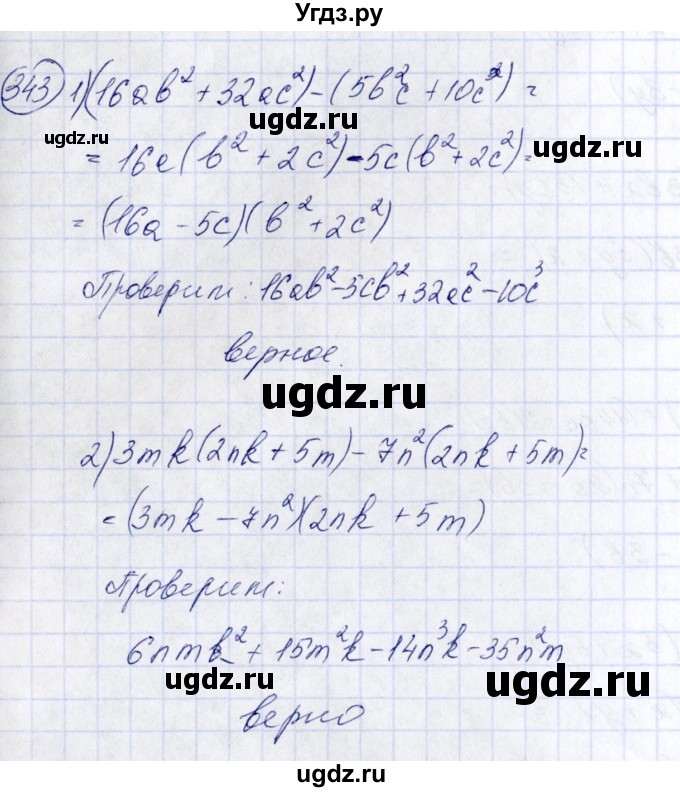 Угдз.ру
343 1)(16ab² + 32ac²) - (5b²c + 10c³) =
ugdz.ru ugdz.ru
= 16a(b² + 2c²) - 5c(b² + 2c²) =
ugdz.ru
= (16a - 5c)(b² + 2c²)
Проверим: 16ab² - 5cb² + 32ac² - 10c³
верное.
ugdz.ru
2) 3mk(2nk + 5m) - 7n²(2nk + 5m) =
= (3mk - 7n²)(2nk + 5m)
Проверим:
6nmk² + 15m²k - 14n³k - 35n²m
ugdz.ru ugdz.ru
верно
ugdz.ru